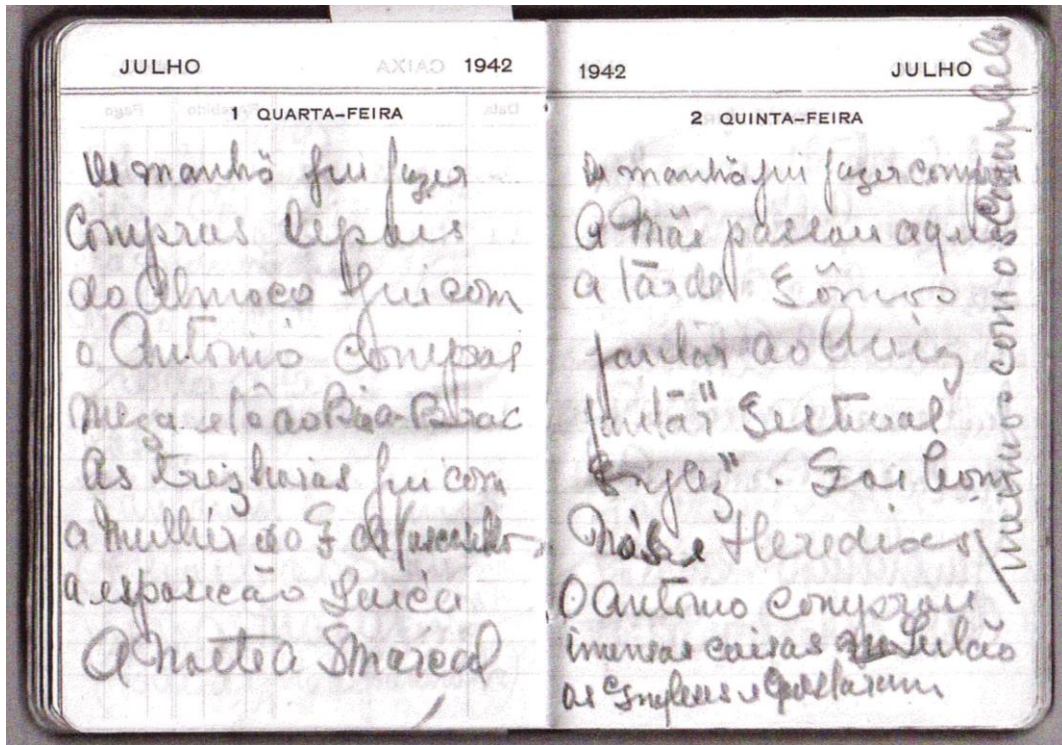 JULHO 1942
1 QUARTA-FEIRA
De manhã fui fazer
Compras depois
do Almoço fui com
o António Compras
até ao
As trez horas fui com
a Mulhér do
a esposição Suiça
A noite a
1942 JULHO
2 QUINTA-FEIRA
De manhã fui fazer compras
A Mãe passou aqui
a tarde Fômos
jantár ao Aviz
jantár" Festival
Inglez". Foi bom
Nós e Heredias
O António comprou
imensas coisas Leilão
os Inglezes e gostaram
menos com os Campbells